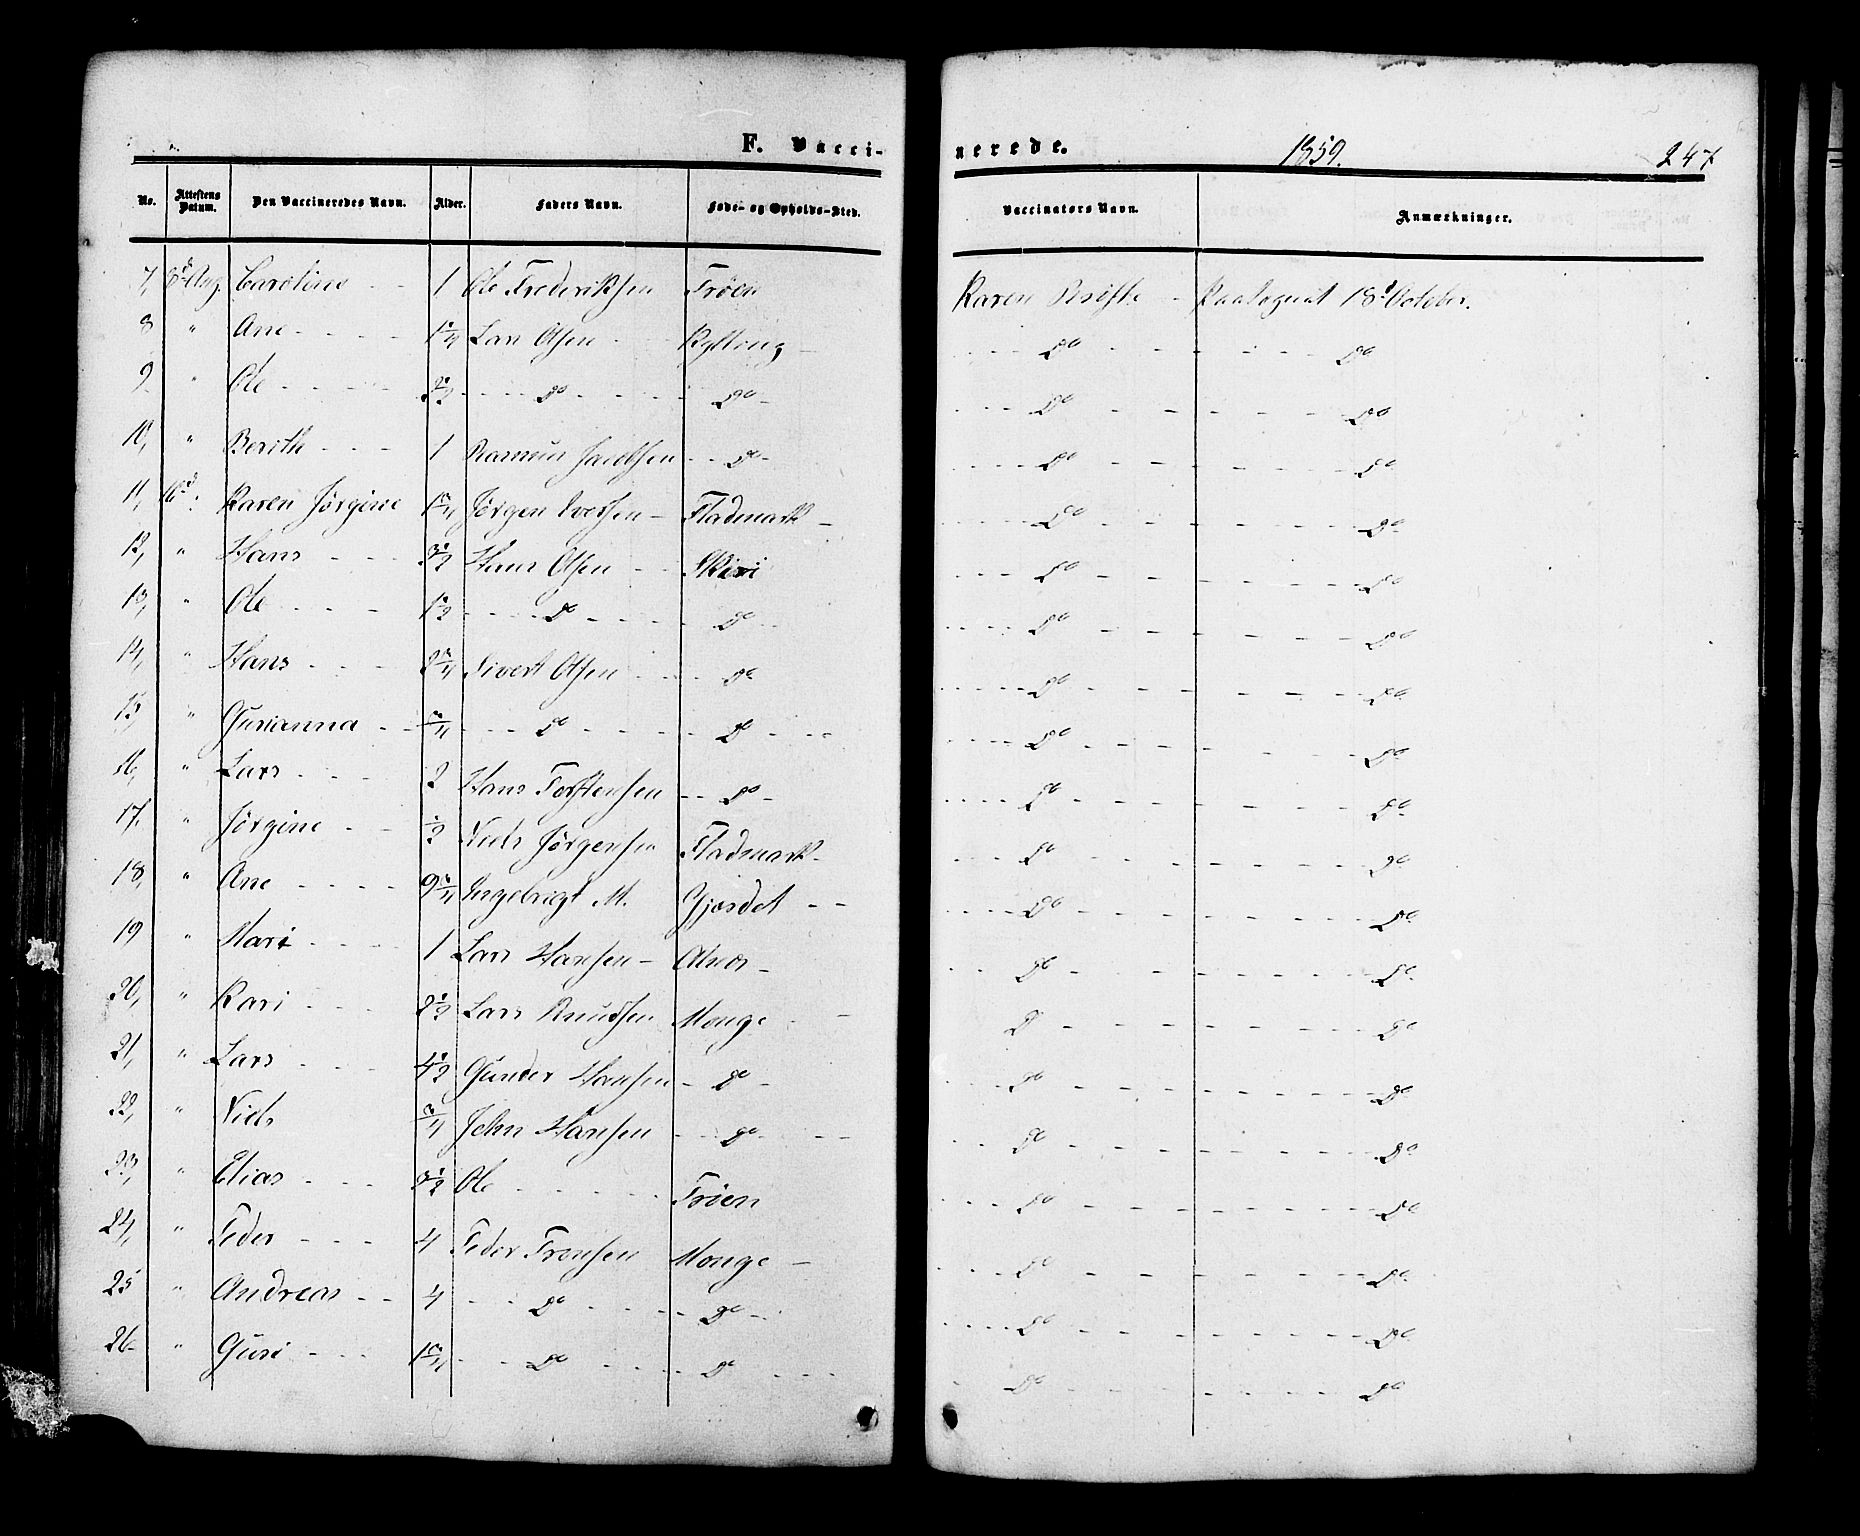 F. Vaccinerede. 1859. 247
No. Attestens Datum. Den Vaccineredes Navn. Alder. Faders Navn. Føde- og Opholds-Sted. Vaccinators Navn. Anmærkninger.
7, 8d Aug. Caroline - - 1 Ole Frederiksen Trøen Karen - 18d October.
8 " Ane - - - - Lars Olsen - - Kylling - - - - - Do - - - - - - Do
9 " Ole - - - - - - - - Do - - - - Do - - - - Do - - - - - Do
10, " Berith - - - 1 Rasmus Jacobsen - - Do - - - - - Do - - - - - Do
11, 16d. Karen Jørgine 1 3/4 Jørgen Iversen - Fladmark - - - - - Do - - - - - - Do
12, " Hans - - - 3 1/2 Hans Olsen - - Skiri - - - - Do - - - - - - Do
13, " Ole - - - - 1 1/2 - - - - Do - - - - - Do - - - - - - Do - - - - - - Do
14, " Hans - - - 2 3/4 Sivert Olsen - - - - Do - - - - - Do - - - - - - Do
15 " Gurianna - - 3/4 - - - - Do - - - - - Do - - - - - - - Do - - - - - - Do
16, " Lars - - - 2 Hans Torstensen - - Do - - - - - Do - - - - - - Do
17. " Jørgine - - 1/2 Niels Jørgensen Fladmark - - - - Do - - - - - - Do
18, " Ane - - - - 9 3/4 Ingebrigt M. Gjerdet - - - - - - Do - - - - - - Do
19 " Mari - - - 1 Lars Hansen - Alnes - - - Do - - - - - - Do
20, " Kari - - - 2 1/2 Lars Knudsen Monge - - Do - - - - - - Do
21, " Lars - - - 4 1/2 Gunder Hansen - Do - - - - Do - - - - - - Do
22, " Niels 3/4 John Hansen - - Do - - - - - Do - - - - - - Do
23, " Elias - - - 3 1/2 Ole - - - - - Trøen - - - Do - - - - - - Do
24, " Peder - - - 4 Peder Tronsen Monge - - - - Do - - - - - - Do
25 " Andreas - - 4 - - - Do - - - - Do - - - - - Do - - - - - - Do
26 " Guri - - - 1 3/4 - - - Do - - - - Do - - - - Do - - - - - - Do